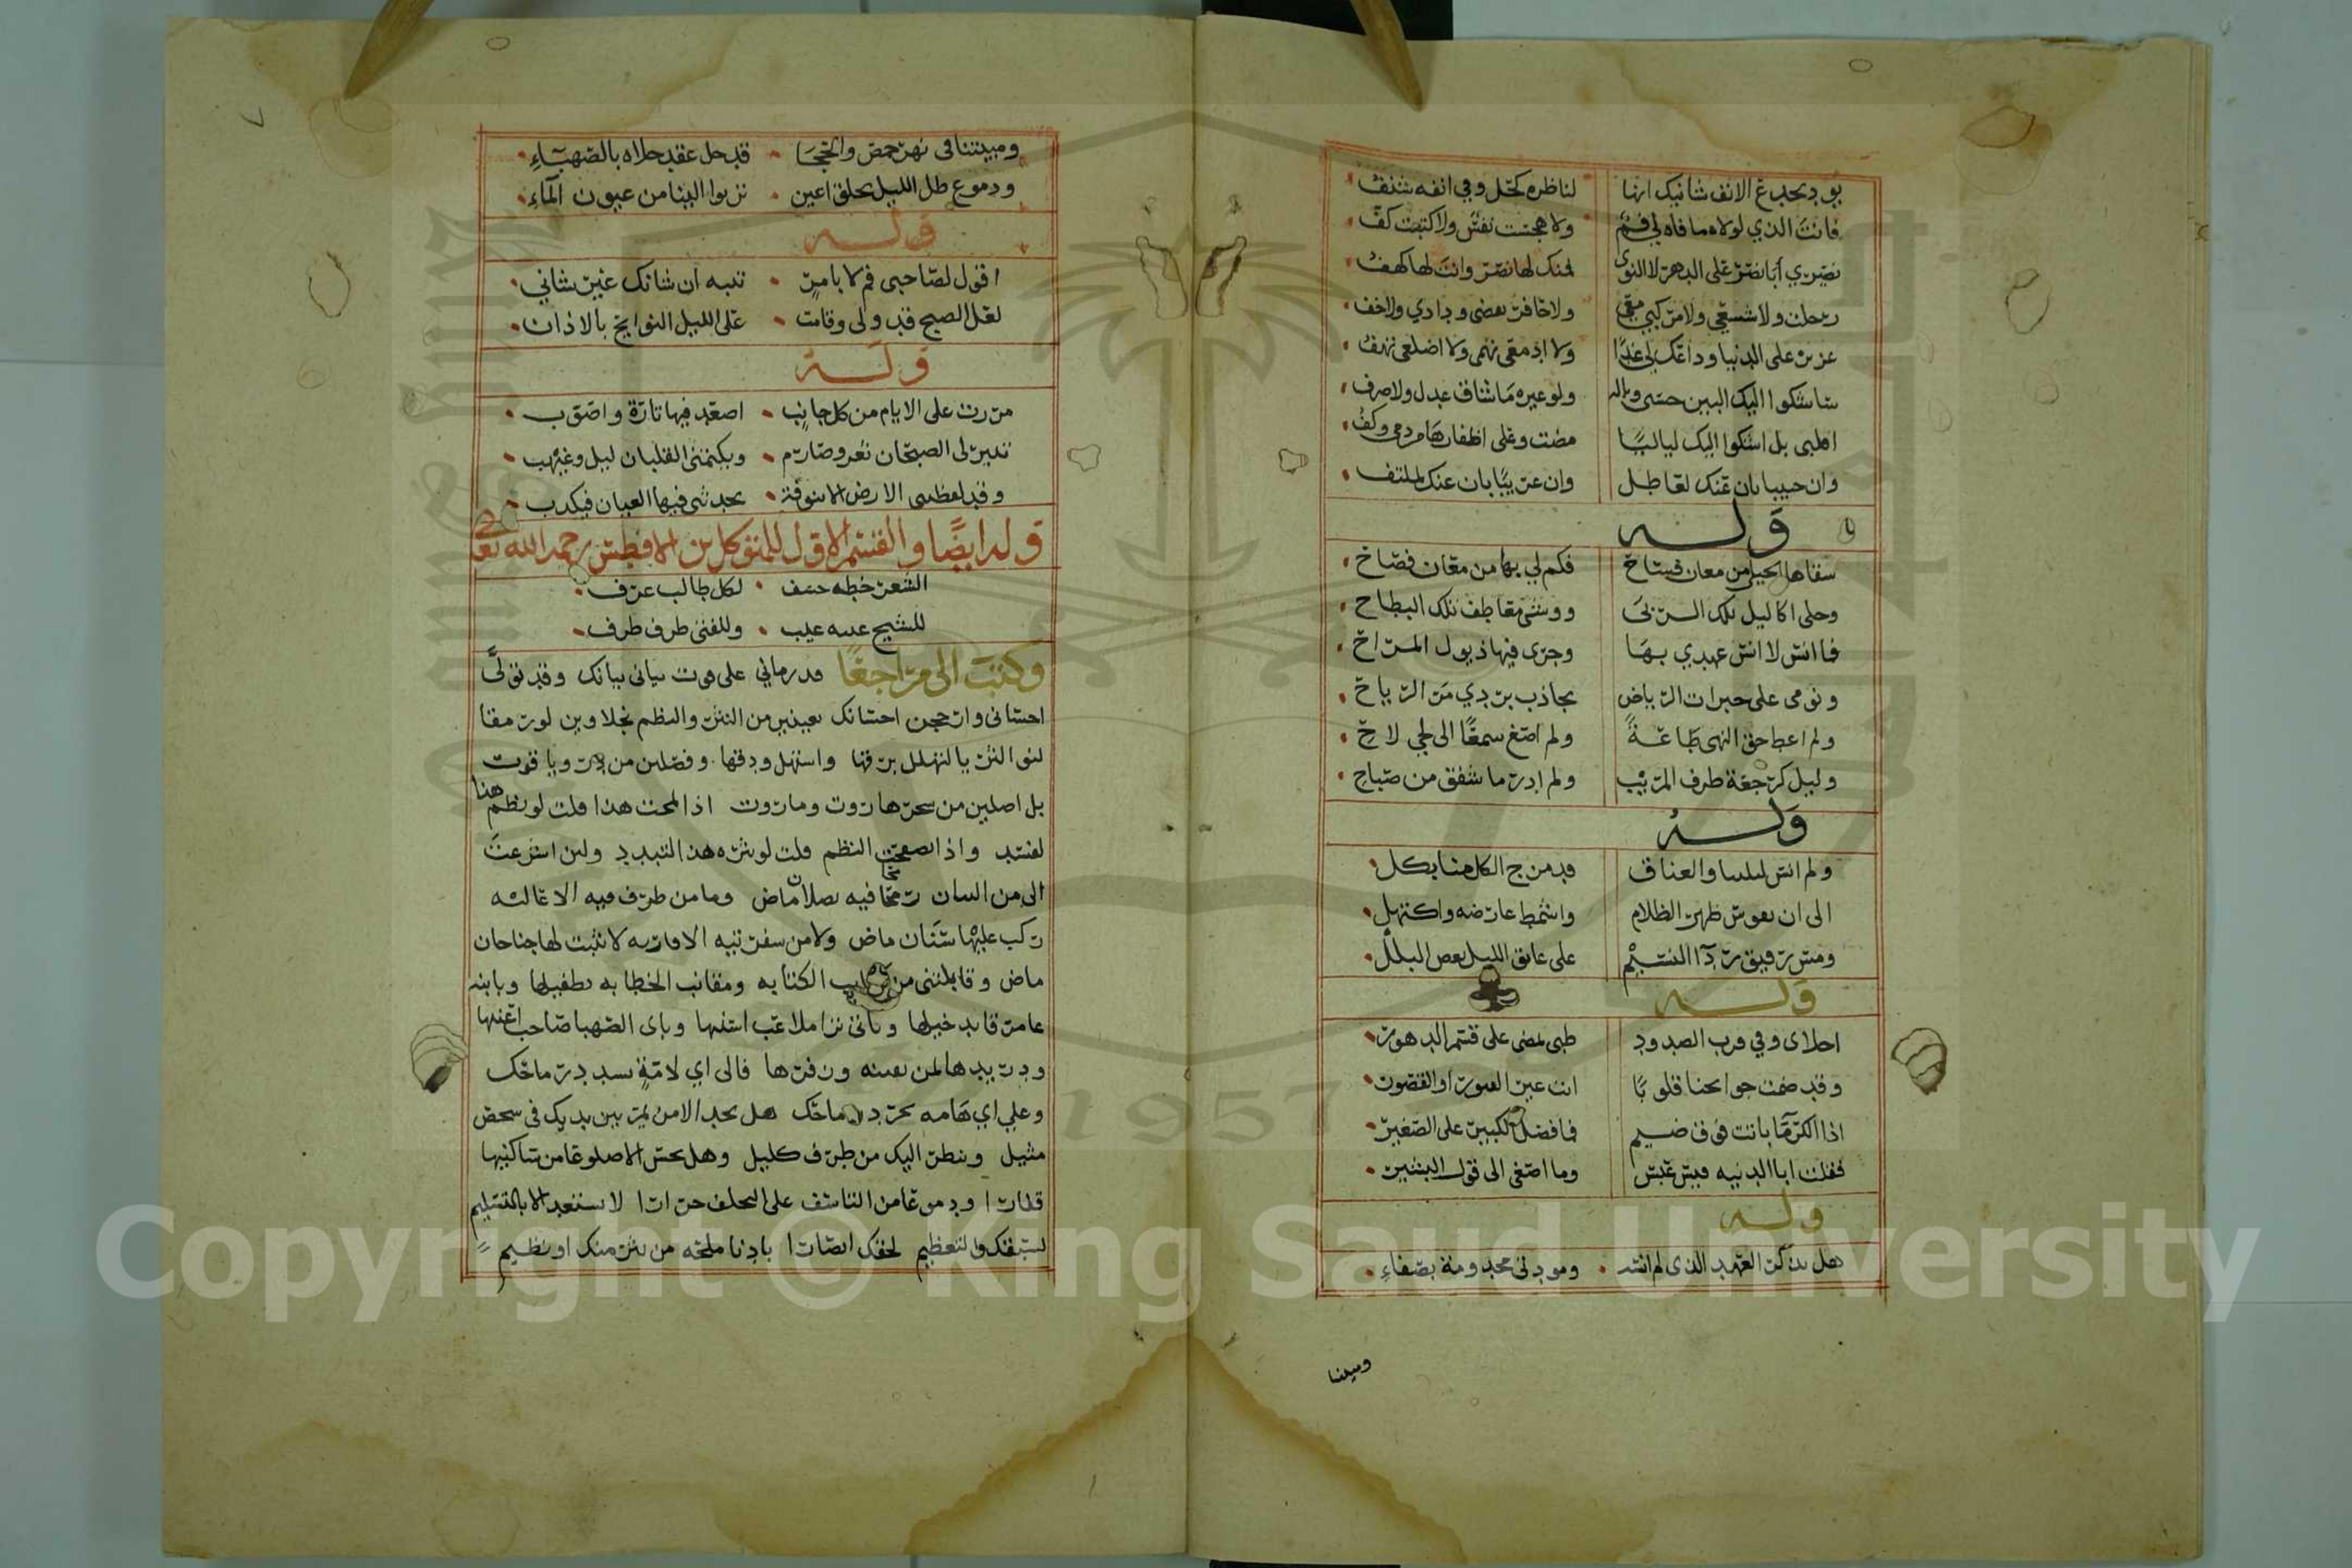 يود بجدع الانف شانيك انها لناظره كحل وفي انفه شنف
فانت الذي لولاه ما فاه لي فم ولا هجست نفس ولا كتبت كف
نصيري أبا نصر على الدهر لا النوى لمنك لها نصر وانت لها كهف
رحلت ولا شسعي ولا مركبي معي ولا حافر بعضي ودادي ولا خف
عزيز على الدنيا وداعك لي غدا ولا ادمعي تهمى ولا اضلعي تهف
ساشكوا اليك البين حسبي وباله ولو غيره ما شاق عدل ولا صرف
اقلبي بل اشكوا اليك لياليا مضت وعلى اظفارها من دمي وكف
وان حبيبا بان عنك لعاطل وان غريبا بان عنك لملتف
وله
سقاها الحيا من معان فساح فكم لي بها من معان فصاح
وحلى اكاليل تلك الربى ووشى معاطف تلك البطاح
فما انس لا انس عهدي بها وجرى فيها ذيول المراح
ونومى على حبرات الرياض يجاذب بردي مر الرياح
ولم اعط حق النهى طاعة ولم اصغ سمعا الى لحي لاح
وليل كرجعة طرف المريب ولم ادر ما شفق من صباح
وله
ولم انس ليلنا والعناق قد مزج الكل منا بكل
الى ان تقوس ظهر الظلام واشمط عارضه واكتهل
ومس رقيق ردا النسيم على عاتق الليل بعض البلل
وله
احلاى وفي قرب الصدود ظبى لمضى على قسم الدهور
وقد ضمت جوانحنا قلوبا ابت غير القبور او القصور
اذا الكرما باتت فوق ضيم فما فضل الكبير على الصغير
فقلت ابا الدنيه قيس عبس وما اصغى الى قول البشير
وله
هل تذكر العهد الذي لم انسه ومودتي مخدومة بصفاء
ومبيتنا
ومبيتنا في نهر حمص والحجا قد حل عقد حلاه بالصهباء
ودموع طل الليل تخلق اعين ترنوا الينا من عيون الماء
وله
اقول لصاحبي قم لا بامر تنبه ان شانك غير شاني
لعل الصبح قد ولى وقامت على الليل النوايح بالاذان
وله
مررت على الايام من كل جانب اصعد فيها تارة واصوب
تنير لى الصبحان ثغر وصارم ويكتمنى القلبان ليل وغيهب
وقد لفظتني الارض الا تنوفة يحدثني فيها العيان فيكذب
وله ايضا والقسم الاول للمتوكل بن الافطس رحمه الله تعالى
الشعر خطه خسف لكل طالب عرف
للشيخ عيبه عيب وللفتى ظرف ظرف
وكتب الى مراجعا قد رماني على فوت بياني بيانك وقد تولى
احساني وارجحن احسانك بعينين من النثر والنظم نجلاوين لو رمقا
لنو النثريا لتهلل برقها واستهل ودقها وفصلين من در وياقوت
بل اصلين من سحر هاروت وماروت اذا لمحت هذا قلت لو نظم هنا
لفسد واذا تصفحت النظم قلت لو نثر هذا التبدد ولئن اشرعت
الي من البيان رمحا فيه نصلان ماض وما من طرف فيه الا عاليه
ركب عليها سنان ماض ولا من سفرتيه الا قاربه لا تثبت لها جناحان
ماض وقابلتني من كتايب الكتابه ومقانب الخطابه بطفيلها وبابنه
عامر قايد خيلها وباتى نزا ملاعب اسنها وباى الصهبا صاحب اعنها
ودريدها لمن بعينه وزفرها فالى اي لامة تسدد رماحك
وعلى اي هامه تجرد رماحك هل تجد الا من يمر بين يديك في شخص
مثيل وينظر اليك من طرف كليل وهل تحس الا صلوعا من ساكنيها
قفارا ودموعا من التاسف على التخلف حرارا لا تستعبد الا بالتسليم
لسبقك والتعظيم لحقك انصارا بادنا ملحه من نثر منك او نظيم